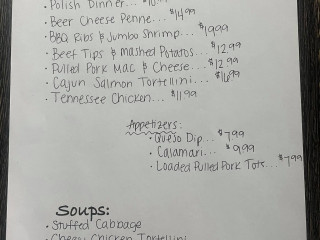 • Polish Dinner...
• Beer Cheese Penne... $14.99
• BBQ Ribs & Jumbo Shrimp... $19.99
• Beef Tips & Mashed Potatos... $12.99
• Pulled Pork Mac & Cheese... $12.99
• Cajun Salmon Tortellini... $16.99
• Tennessee Chicken... $11.99
Appetizers:
• Queso Dip... $7.99
• Calamari... $9.99
• Loaded Pulled Pork Tots... $7.99
Soups:
• Stuffed Cabbage
• Cheesy Chicken Tortellini